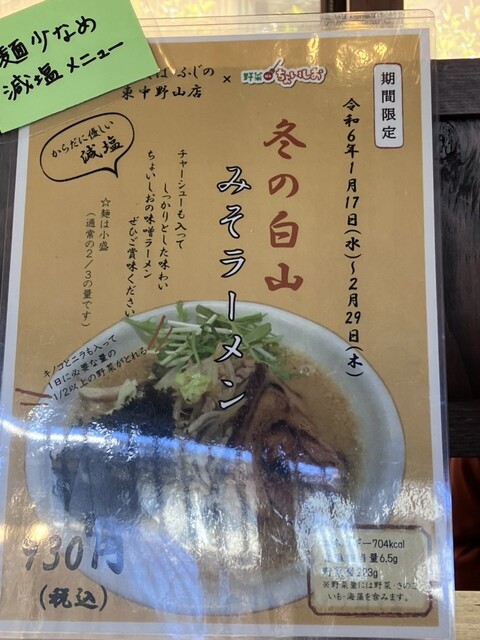 麺少なめ
減塩メニュー
ふじの
東中野山店
×
野菜 ちょいしお
期間限定
令和6年1月17日(水)～2月29日(木)
冬の白山
みそラーメン
からだに優しい
減塩
チャーシューも入って
しっかりとした味わい
ちょいしおの味噌ラーメン
ぜひご賞味ください
☆麺は小盛
(通常の2/3の量です)
キノコとニラも入って
1日に必要な量の
1/2以上の野菜がとれる
930円
(税込)
ー704kcal
量6.5g
野菜量223g
※野菜量には野菜・きのこ
いも・海藻を含みます。